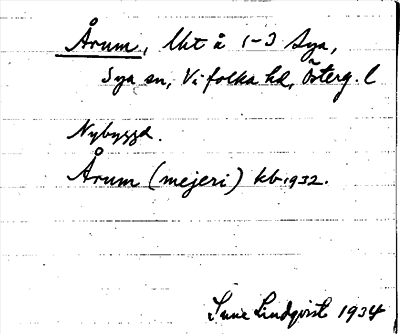 Årum, lht å 1-3 Sya,
Sya sn, Vifolka hd, Österg. l
Nybyggd.
Årum (mejeri) kb 1932.
Sune Lindqvist 1934